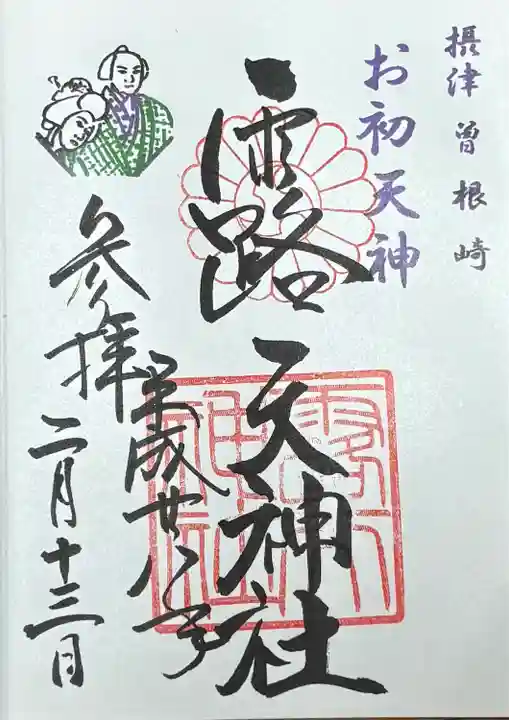 摂津 曽根崎
お初天神
露
天神社
平成廿八年
参拝
二月十三日